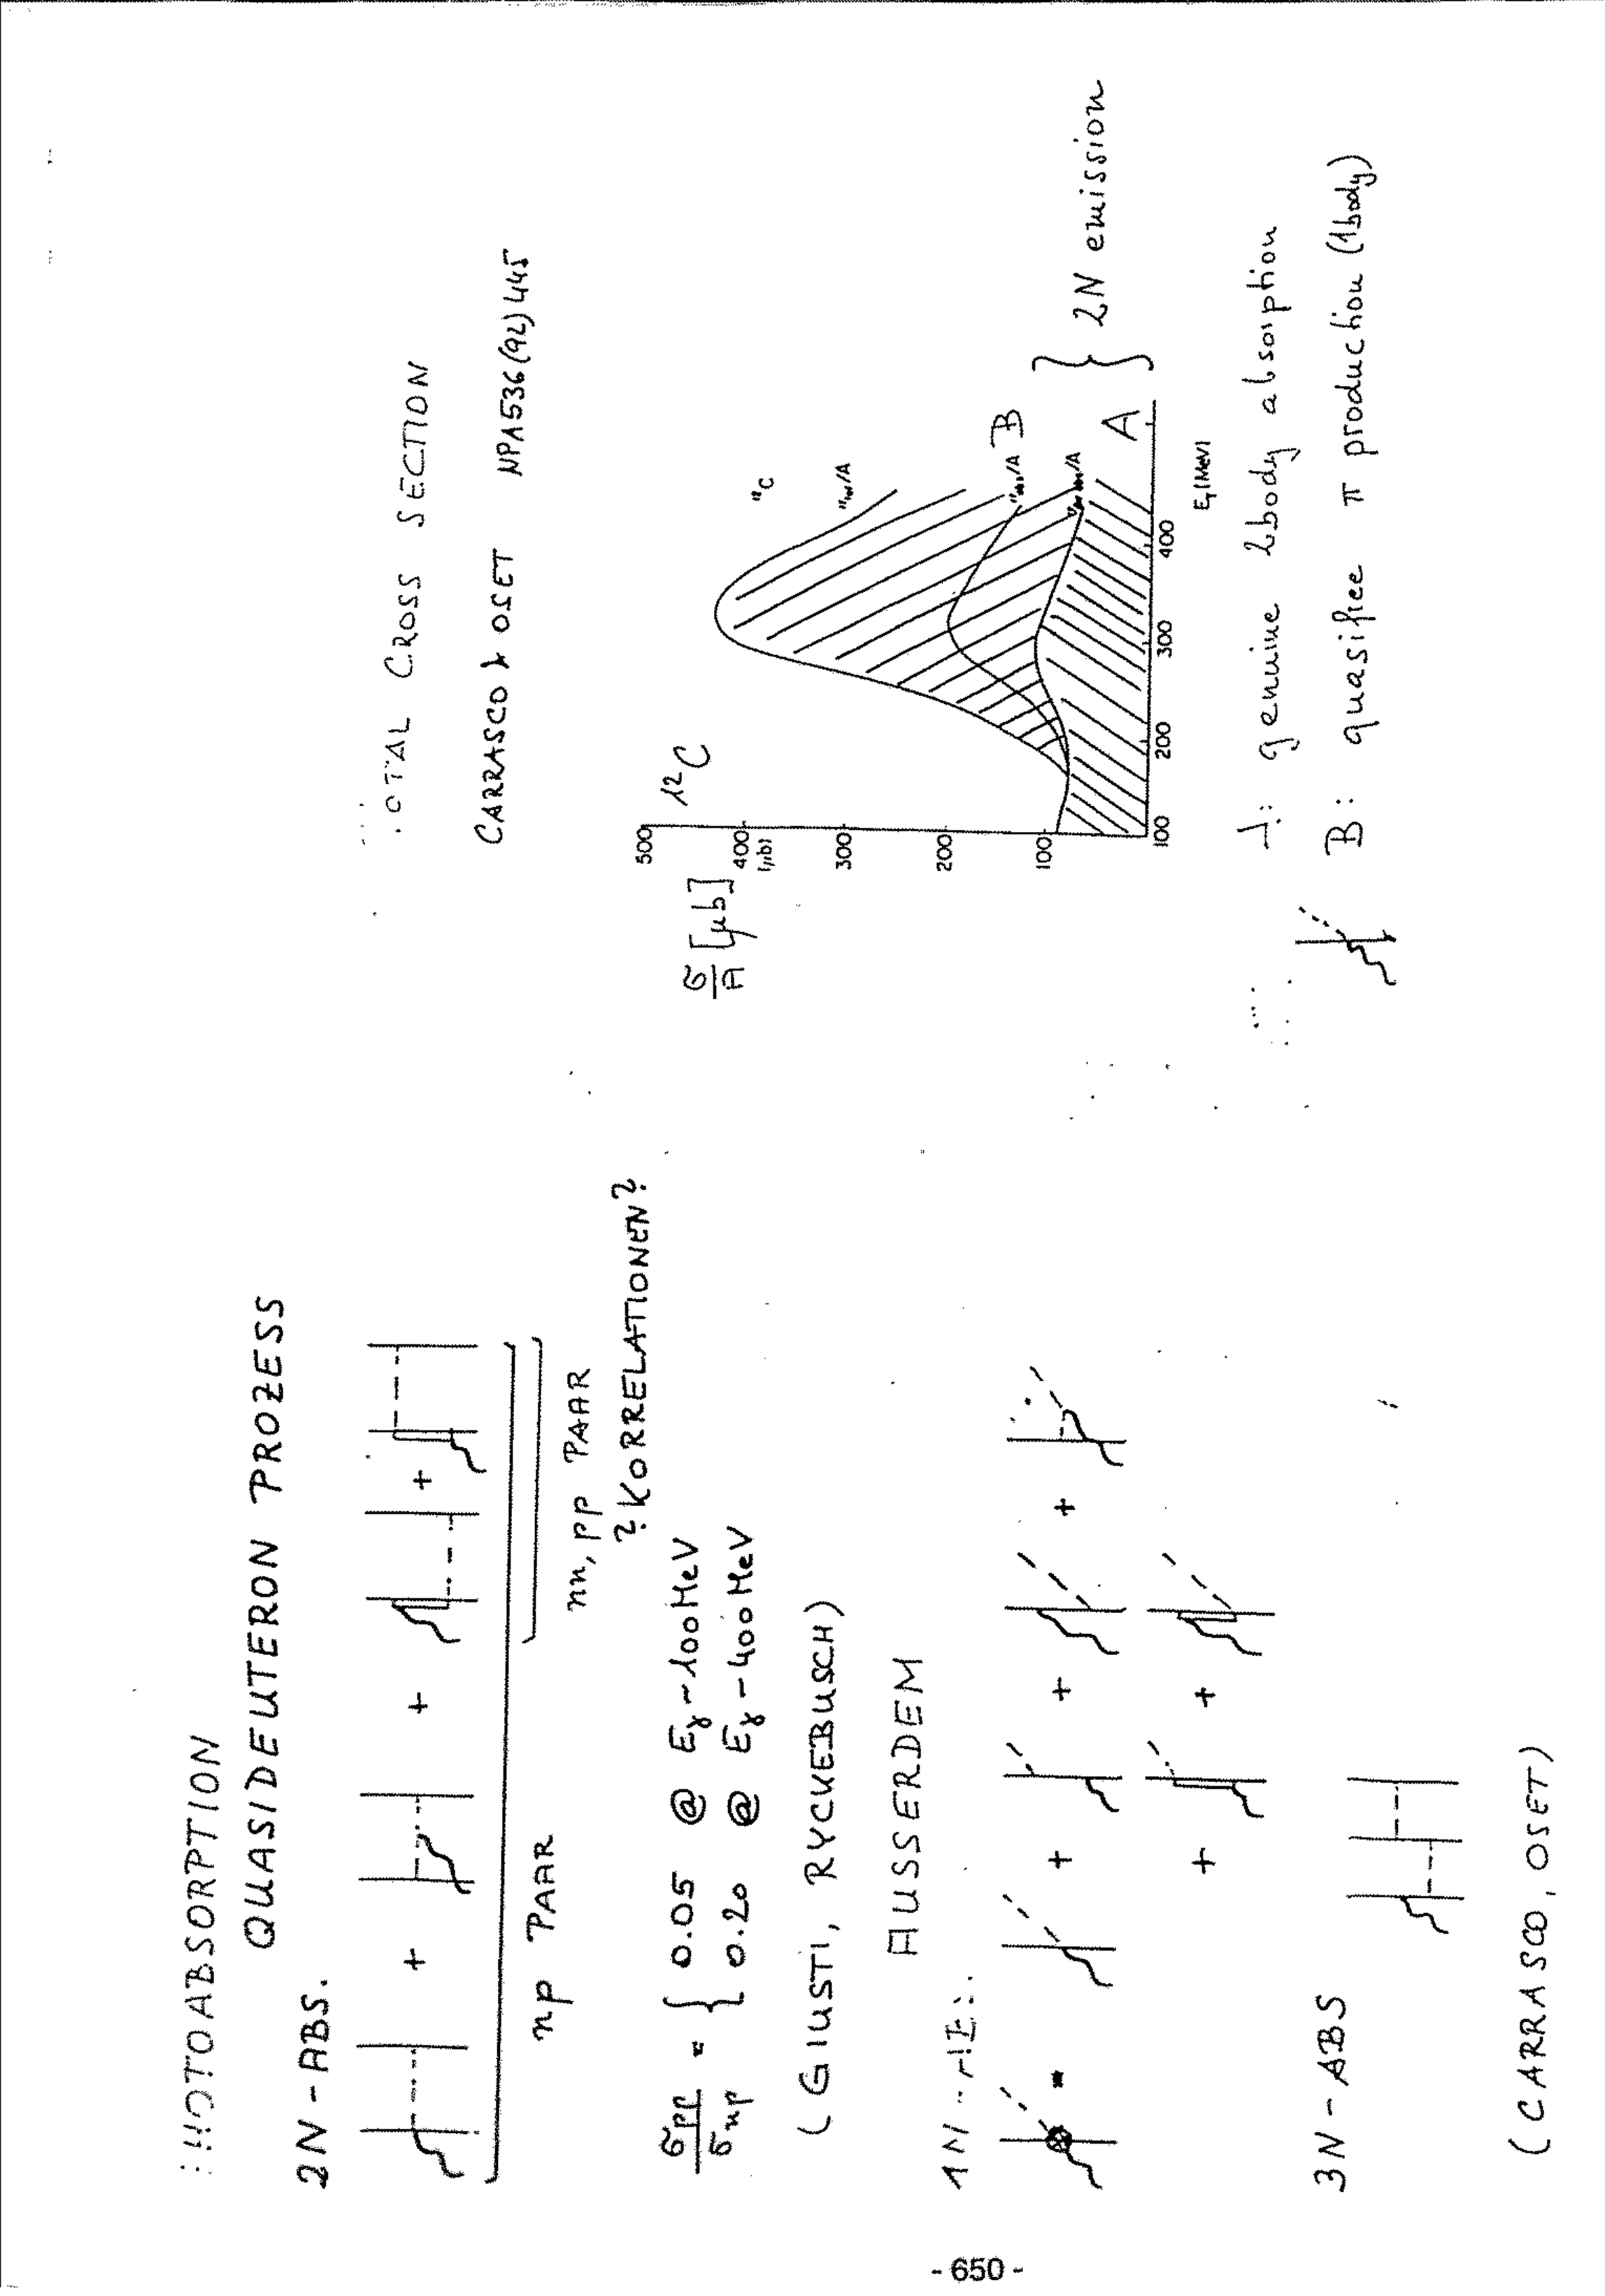 HOTOABSORPTION
QUASIDEUTERON PROZESS
2N-ABS.
+ + +
np PAAR
nn, pp PAAR
? KORRELATIONEN?
σpp/σnp = { 0.05 @ Eγ ~ 100 MeV
0.20 @ Eγ ~ 400 MeV
(GIUSTI, RYCKEBUSCH)
AUSSERDEM
1N
= + + +
+ +
3N-ABS
(CARRASCO, OSET)
OTAL CROSS SECTION
CARRASCO & OSET NPA536(92)445
σ/A [μb]
12C
500
400
(μb)
300
200
100
100 200 300 400
Eγ (MeV)
12C
B
A
} 2N emission
: genuine 2body absorption
B: quasifree π production (1body)
- 650 -